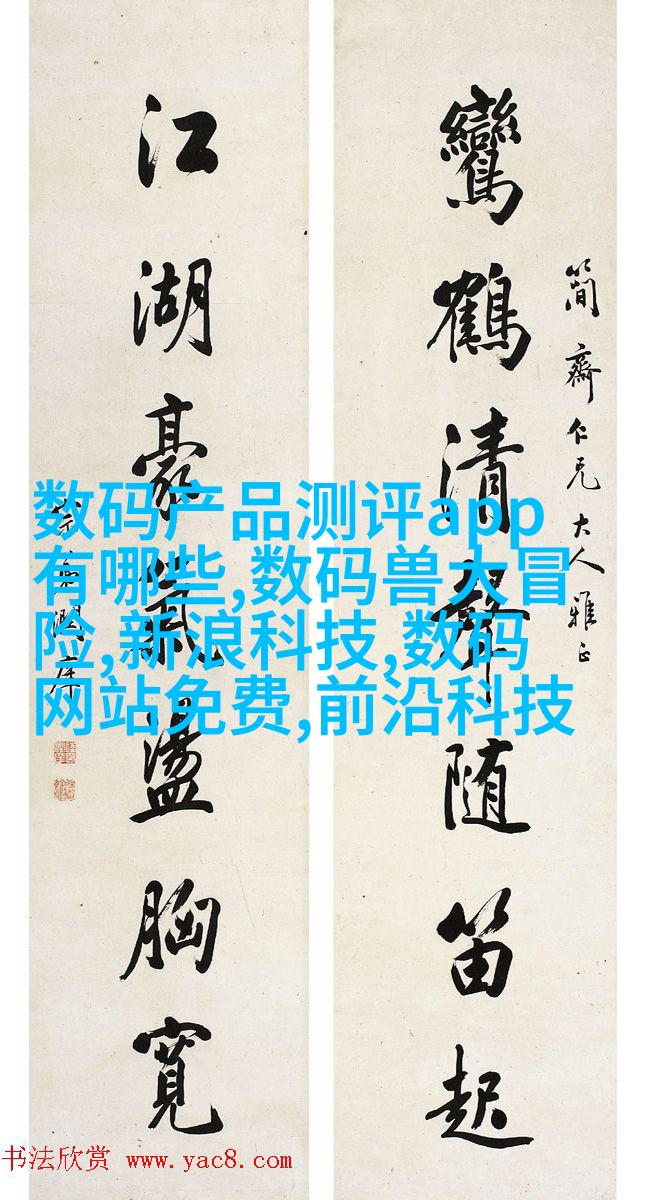 簡齋仁兄大人雅正
鸞鶴清聲随笛起
江湖豪氣盪胸寬
弟潤庠
数码产品测评app
有哪些,数码兽大冒
险,新浪科技,数码
网站免费,前沿科技
书法欣赏 www.yac8.com